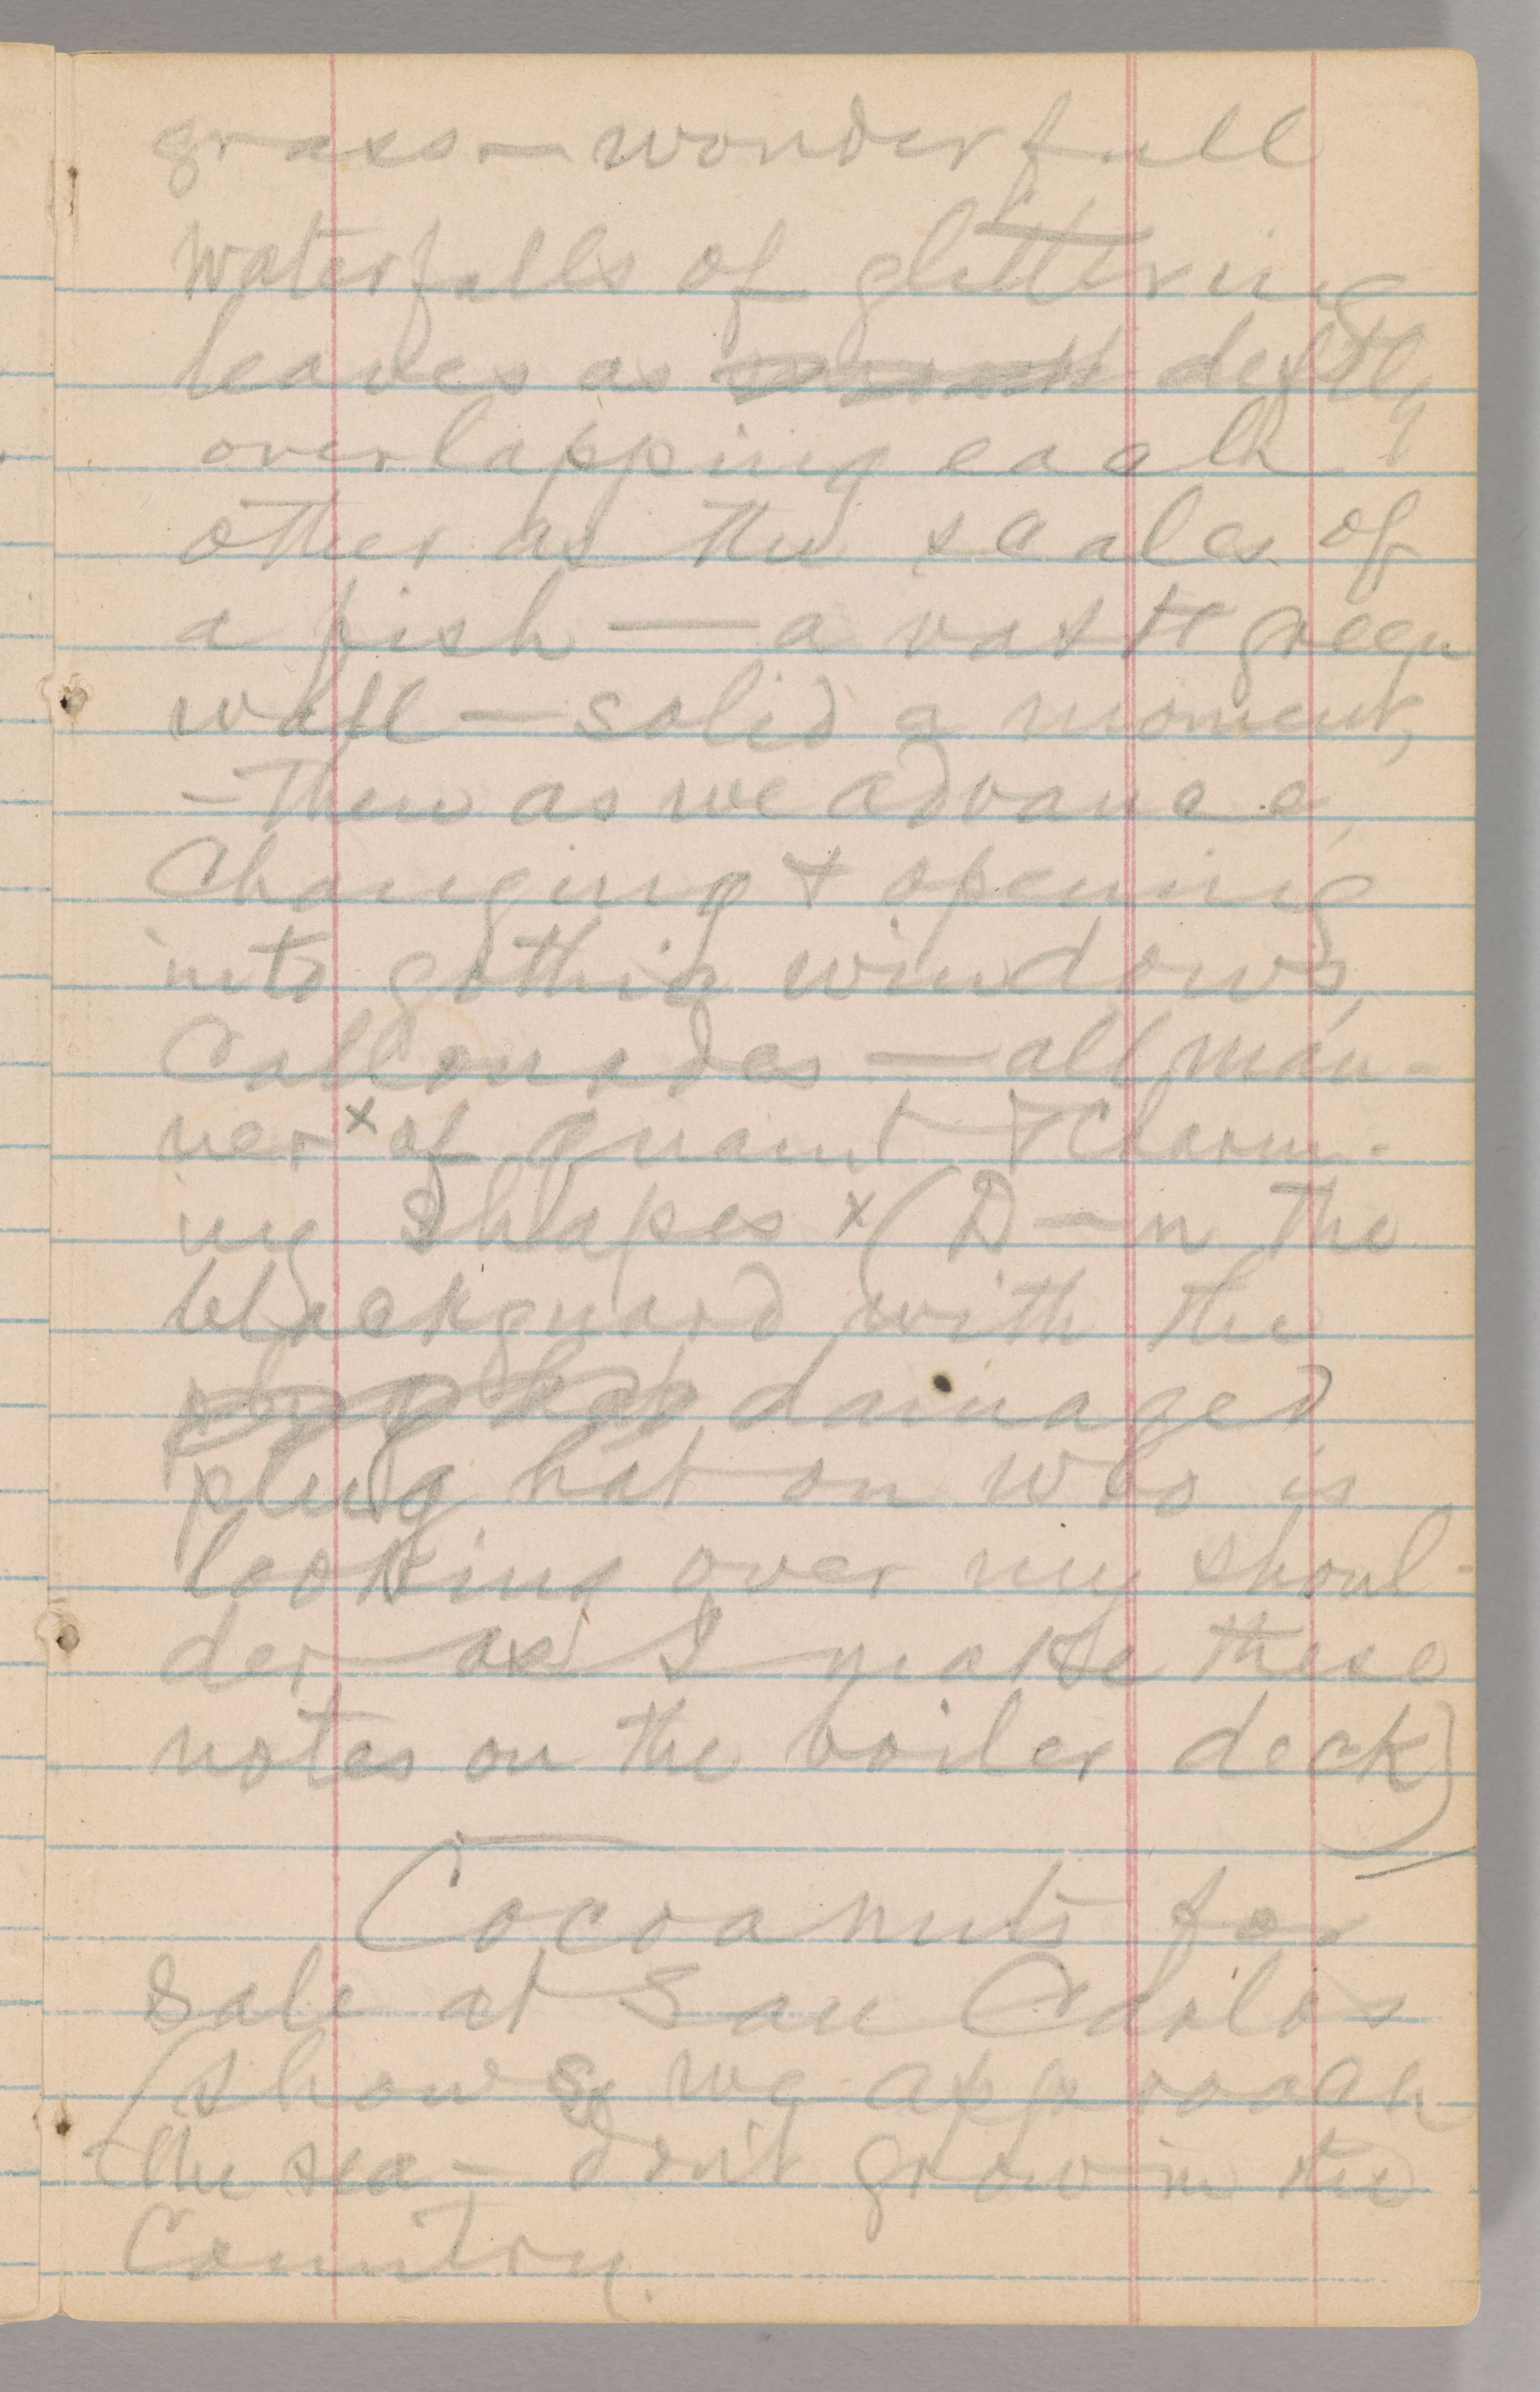 grass—wonderfull
waterfalls of glittering
leaves as smooth deftly
overlapping each
other as the scales of
a fish — a vast green
wall — solid a moment,
— then as we advance,
changing & opening
into gothic windows,
Collonades — all man-
ner x of quaint & charm-
ing shapes x (D—n the
blackguard with the
plug hat damaged
plug hat on who is
looking over my shoul-
der as I make these
notes on the boiler deck)
Cocoanuts for
sale at San Carlos
(shows we approach
the sea — don't grow in the
Country.